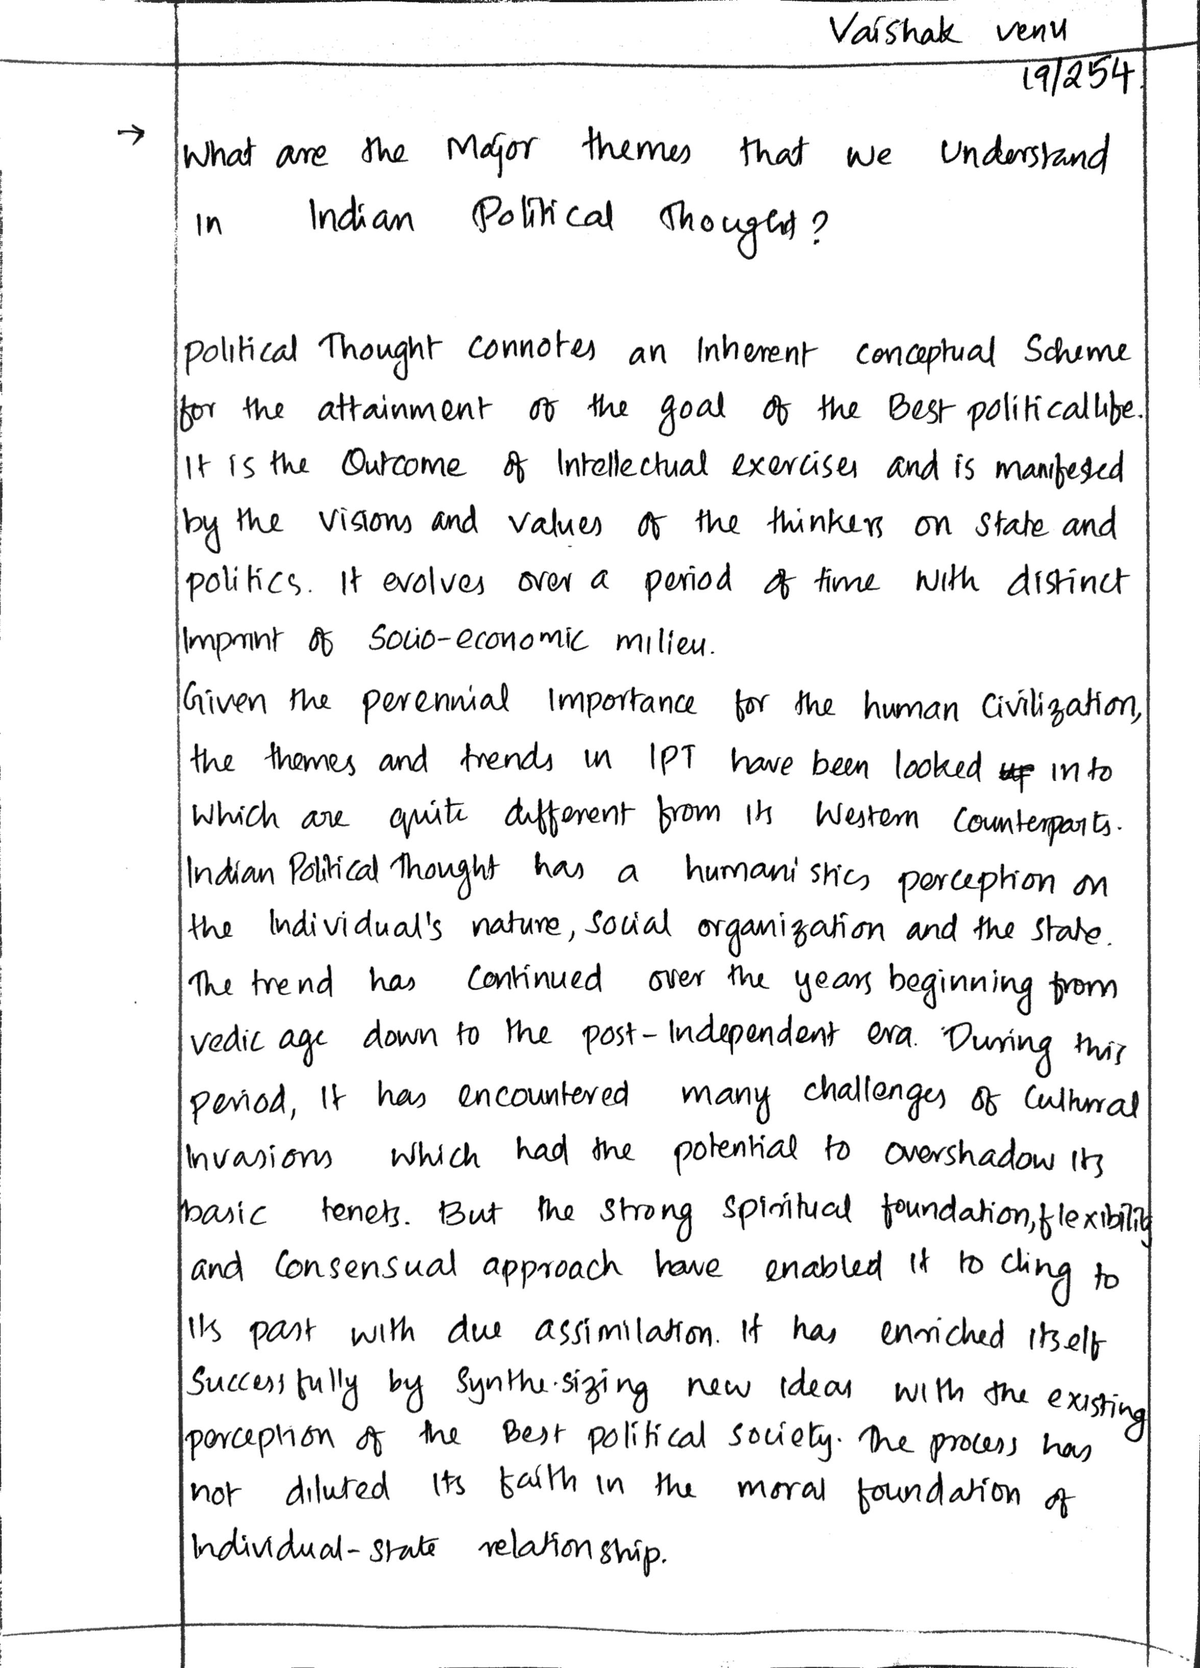 Vaishak venu
19/254.
→ What are the Major themes that we Understand
in Indian Political Thought?
Political Thought connotes an Inherent conceptual Scheme
for the attainment of the goal of the Best political life.
It is the Outcome of Intellectual exercises and is manifested
by the visions and values of the thinkers on state and
politics. It evolves over a period of time with distinct
Imprint of Socio-economic milieu.
Given the perennial Importance for the human Civilization,
the themes and trends in IPT have been looked up into
which are quite different from its Western Counterparts.
Indian Political Thought has a humanistics perception on
the Individual's nature, social organization and the state.
The trend has Continued over the years beginning from
vedic age down to the post-Independent era. During this
period, It has encountered many challenges of Cultural
Invasions which had the potential to overshadow Its
basic tenets. But the strong spiritual foundation, flexibility
and Consensual approach have enabled it to cling to
Its past with due assimilation. It has enriched itself
Successfully by synthe.sizing new ideas with the existing
perception of the Best political society. The process has
not diluted Its faith in the moral foundation of
Individual-state relationship.